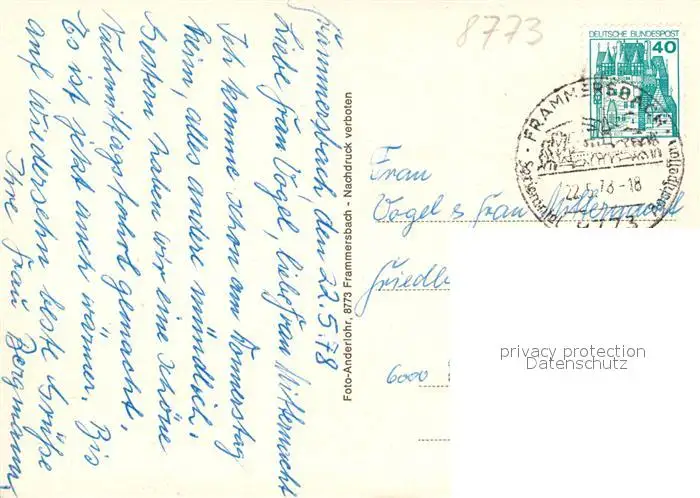 8773
DEUTSCHE BUNDESPOST
40
FRAMMERSBACH
22.5.78-18
8773
Frammersbach den 22.5.78
Liebe Frau Vogel, liebe Frau Mitternacht
Ich komme schon am Donnerstag
heim, alles andere mündlich.
Gestern haben wir eine schöne
Nachmittagsfahrt gemacht.
Es ist jetzt auch wärmer. Bis
auf Wiedersehn beste Grüße
Ihre Frau Bergmann
Foto-Anderlohr, 8773 Frammersbach - Nachdruck verboten
Frau
Vogel & Frau Mitternacht
6000
privacy protection
Datenschutz